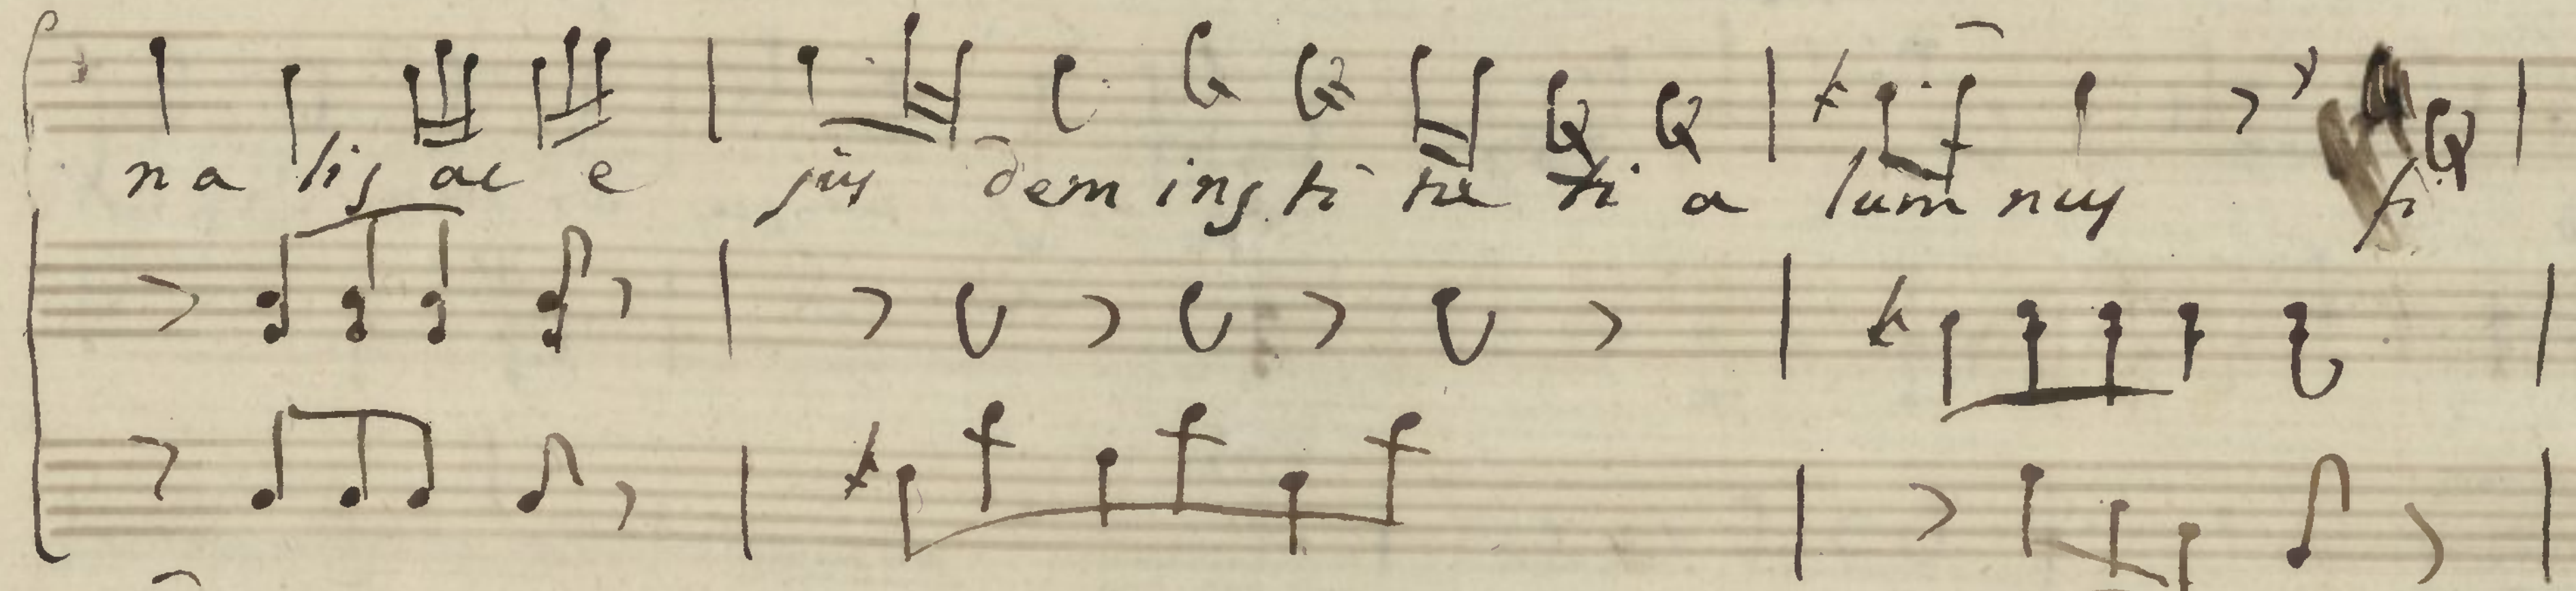 na lis ac e jus dem ins ti tu ti a lum nus fi